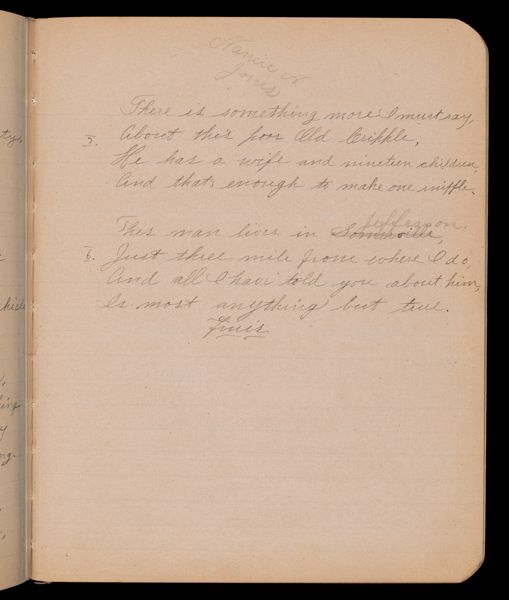 Nancie N
Jones
There is something more I must say,
5. About this poor Old Cripple,
He has a wife and nineteen children,
And thats enough to make one
This man lives in Somerville, Jefferson,
6. Just three mile from where I do,
And all I have told you about him,
Is most anything but true.
Finis